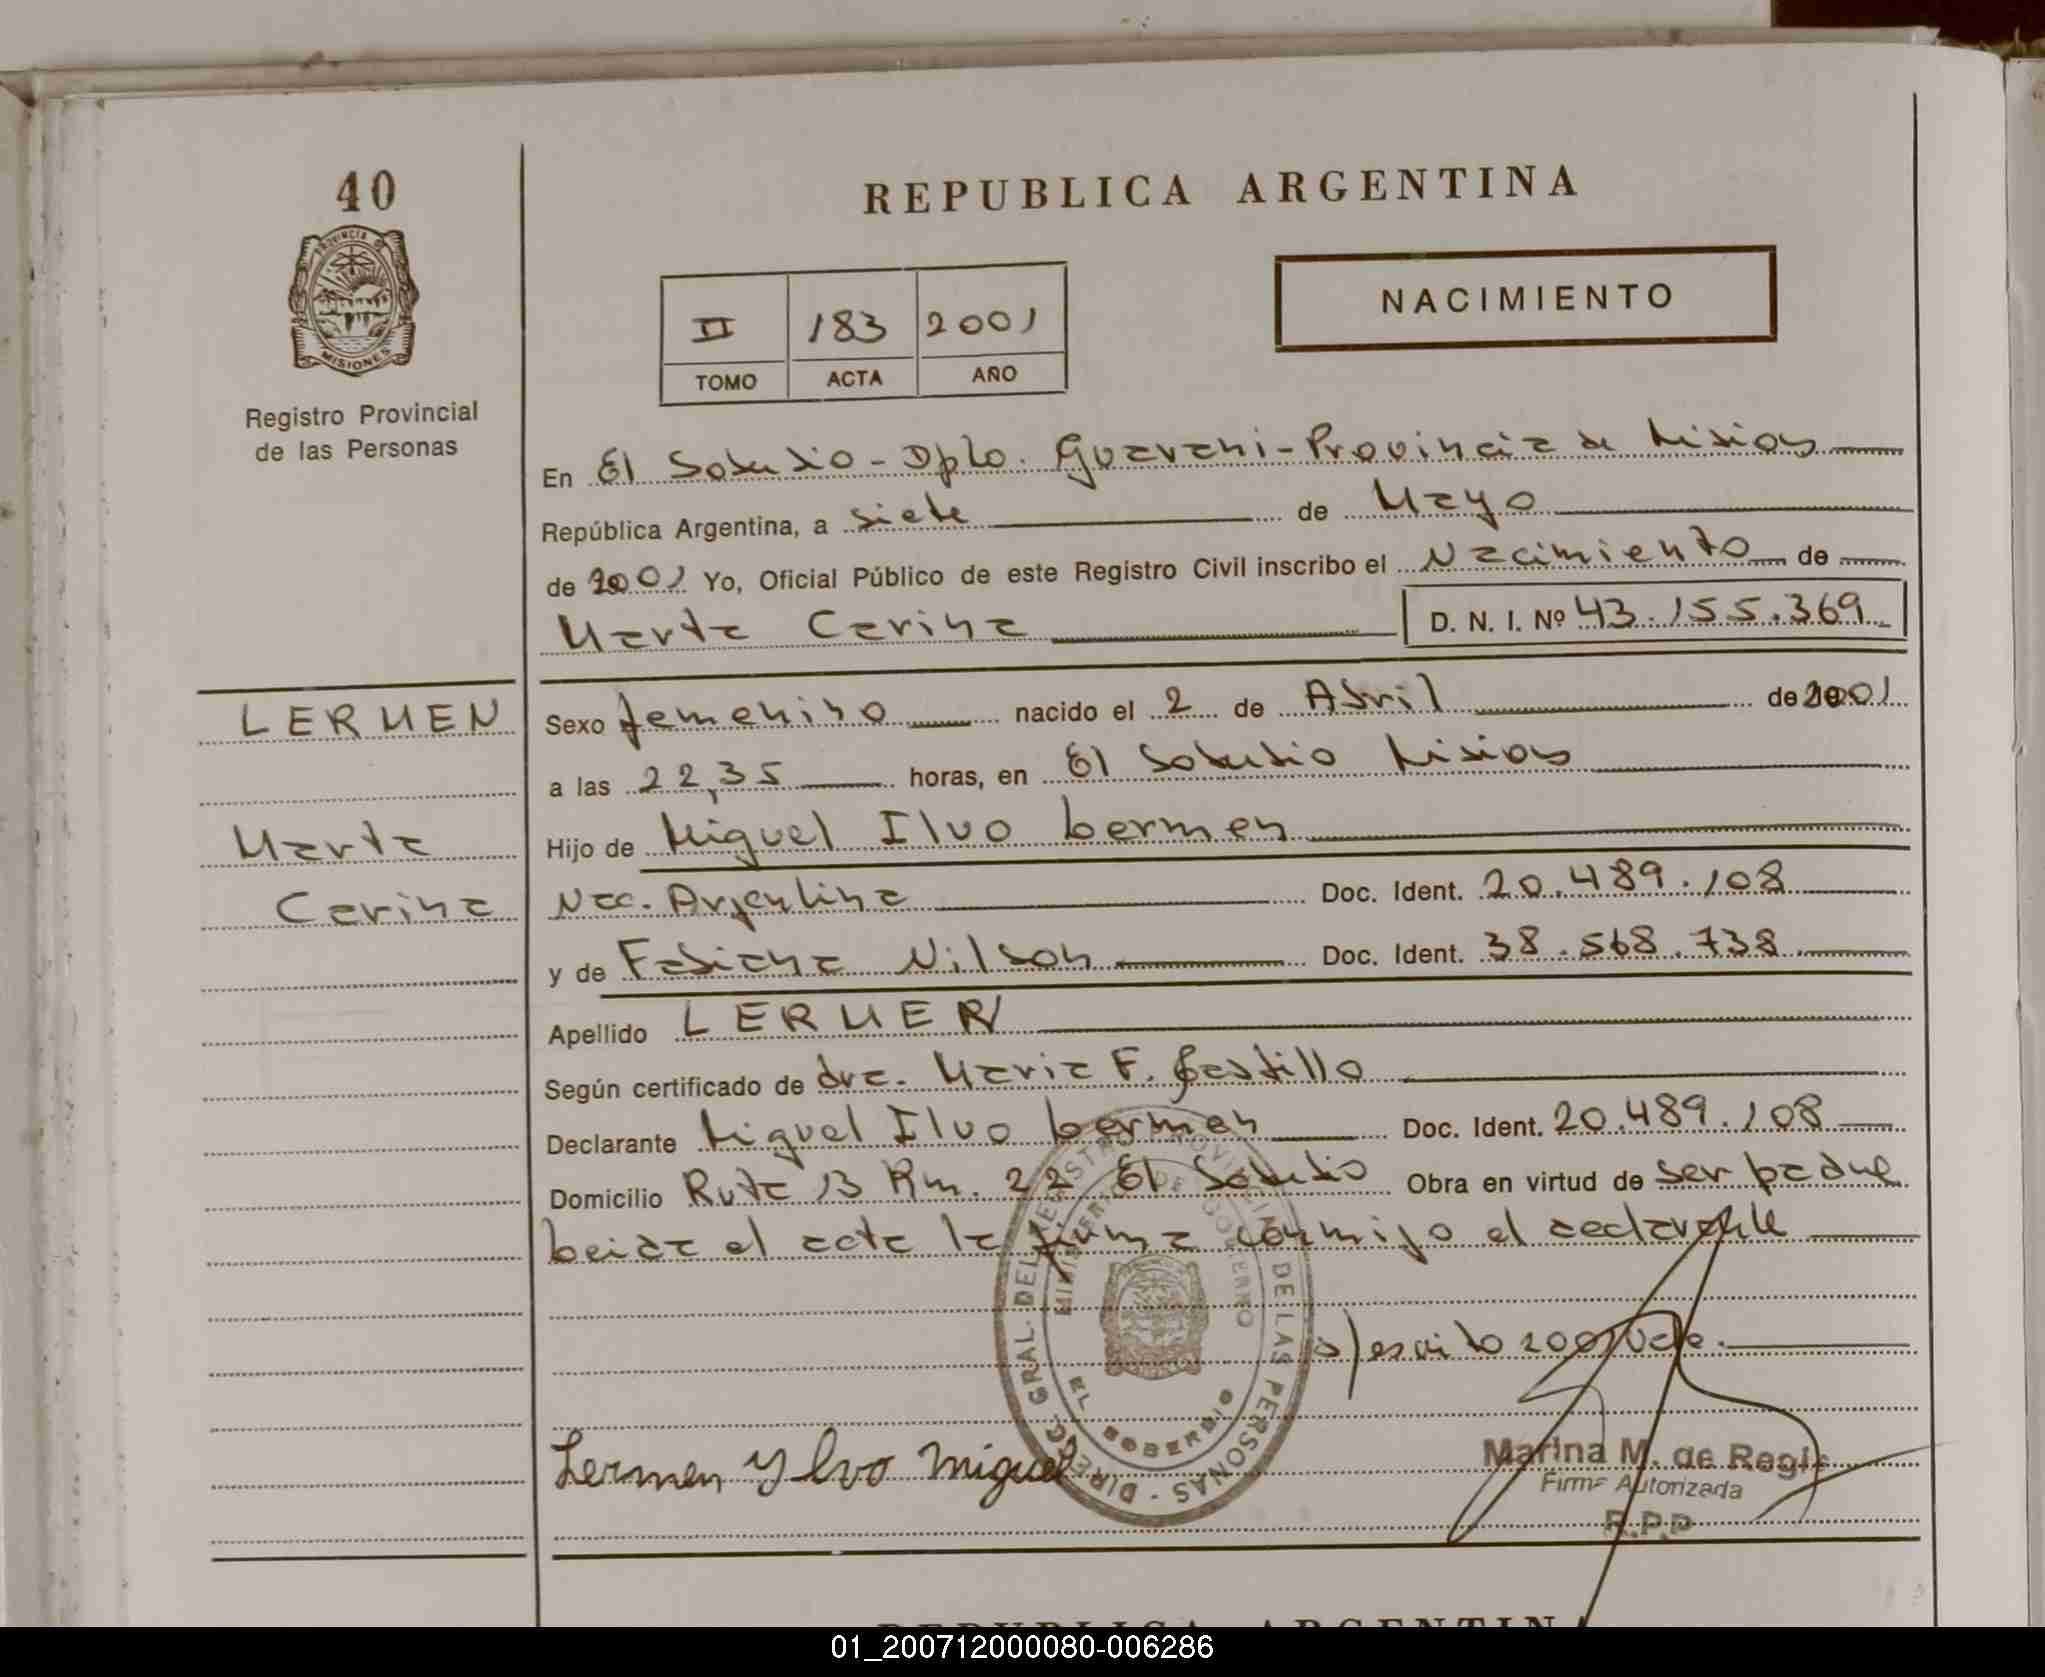 40
REPUBLICA ARGENTINA
PROVINCIA DE
MISIONES
NACIMIENTO
II 183 2001
TOMO ACTA AÑO
Registro Provincial
de las Personas
En El Soberbio - Dpto. Guarani - Provincia de Misiones
República Argentina, a siete de Mayo
de 2001 Yo, Oficial Público de este Registro Civil inscribo el Nacimiento de
Marta Carina D. N. I. Nº 43.155.369
LERMEN
Sexo femenino nacido el 2 de Abril de 2001
a las 22,35 horas, en El Soberbio Misiones
Marta
Hijo de Miguel Ilvo Lermen
Carina
Nac. Argentina Doc. Ident. 20.489.108
y de Fabiana Nilson Doc. Ident. 38.568.738
Apellido LERMEN
Según certificado de dra. Maria F. Castillo
Declarante Miguel Ilvo Lermen Doc. Ident. 20.489.108
Domicilio Ruta 13 Km. 22 El Soberbio Obra en virtud de ser padre
Leida el acta la firma conmigo el declarante
s/escrito 2001 Vale.
DIREC. GRAL. DEL REGISTRO PROVINCIAL DE LAS PERSONAS
MINISTERIO DE GOBIERNO
EL SOBERBIO
Lermen Ylvo Miguel
Marina M. de Regis
Firma Autorizada
R.P.P
REPUBLICA ARGENTIN
01_200712000080-006286